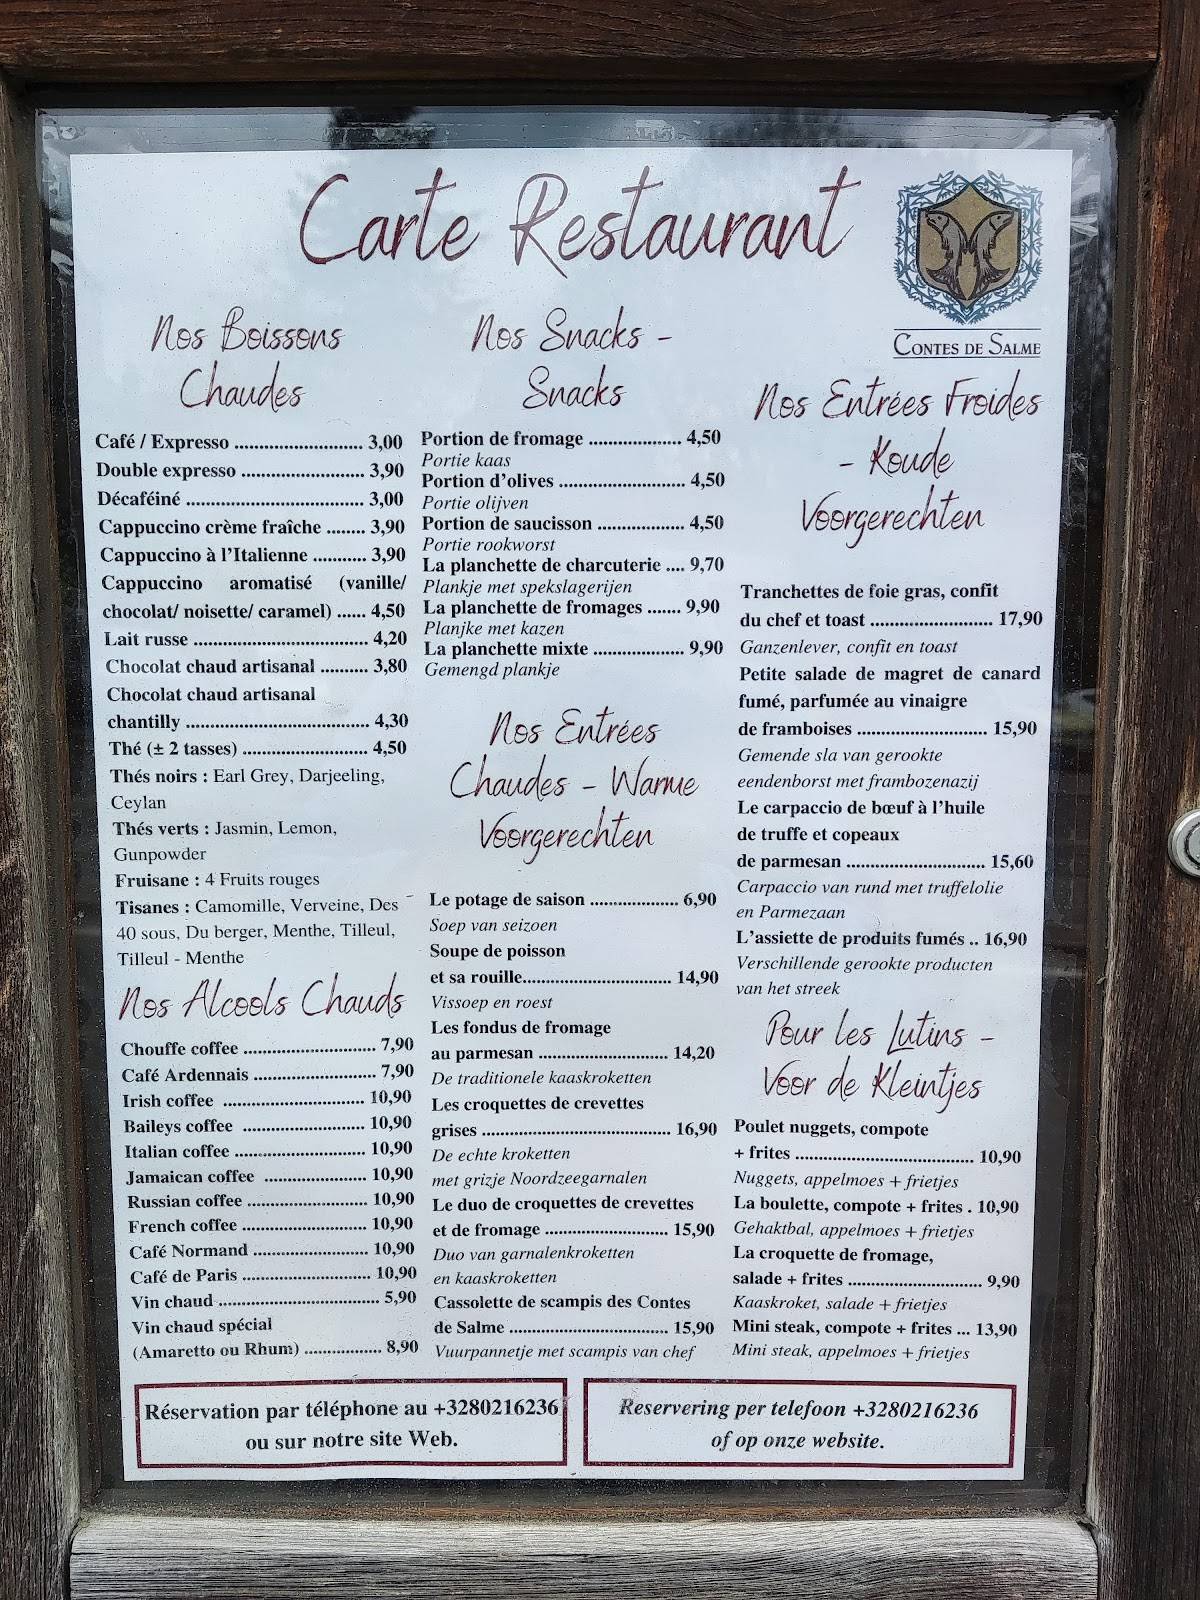 Carte Restaurant
CONTES DE SALME
Nos Boissons
Chaudes
Café / Expresso ........................... 3,00
Double expresso .......................... 3,90
Décaféiné ...................................... 3,00
Cappuccino crème fraîche ........ 3,90
Cappuccino à l'Italienne ........... 3,90
Cappuccino aromatisé (vanille/
chocolat/ noisette/ caramel) ...... 4,50
Lait russe ..................................... 4,20
Chocolat chaud artisanal .......... 3,80
Chocolat chaud artisanal
chantilly ....................................... 4,30
Thé (± 2 tasses) ........................... 4,50
Thés noirs : Earl Grey, Darjeeling,
Ceylan
Thés verts : Jasmin, Lemon,
Gunpowder
Fruisane : 4 Fruits rouges
Tisanes : Camomille, Verveine, Des
40 sous, Du berger, Menthe, Tilleul,
Tilleul - Menthe
Nos Alcools Chauds
Chouffe coffee ............................ 7,90
Café Ardennais .......................... 7,90
Irish coffee .............................. 10,90
Baileys coffee .......................... 10,90
Italian coffee ............................ 10,90
Jamaican coffee ...................... 10,90
Russian coffee .......................... 10,90
French coffee ........................... 10,90
Café Normand ......................... 10,90
Café de Paris ............................ 10,90
Vin chaud .................................. 5,90
Vin chaud spécial
(Amaretto ou Rhum) ................. 8,90
Nos Snacks -
Snacks
Portion de fromage ................... 4,50
Portie kaas
Portion d'olives .......................... 4,50
Portie olijven
Portion de saucisson .................. 4,50
Portie rookworst
La planchette de charcuterie .... 9,70
Plankje met spekslagerijen
La planchette de fromages ....... 9,90
Planjke met kazen
La planchette mixte ................... 9,90
Gemengd plankje
Nos Entrées
Chaudes - Warme
Voorgerechten
Le potage de saison ................... 6,90
Soep van seizoen
Soupe de poisson
et sa rouille................................ 14,90
Vissoep en roest
Les fondus de fromage
au parmesan ............................ 14,20
De traditionele kaaskroketten
Les croquettes de crevettes
grises ......................................... 16,90
De echte kroketten
met grizje Noordzeegarnalen
Le duo de croquettes de crevettes
et de fromage ........................... 15,90
Duo van garnalenkroketten
en kaaskroketten
Cassolette de scampis des Contes
de Salme ................................... 15,90
Vuurpannetje met scampis van chef
Nos Entrées Froides
- Koude
Voorgerechten
Tranchettes de foie gras, confit
du chef et toast .......................... 17,90
Ganzenlever, confit en toast
Petite salade de magret de canard
fumé, parfumée au vinaigre
de framboises ............................ 15,90
Gemende sla van gerookte
eendenborst met frambozenazij
Le carpaccio de bœuf à l'huile
de truffe et copeaux
de parmesan .............................. 15,60
Carpaccio van rund met truffelolie
en Parmezaan
L'assiette de produits fumés .. 16,90
Verschillende gerookte producten
van het streek
Pour les Lutins -
Voor de Kleintjes
Poulet nuggets, compote
+ frites ....................................... 10,90
Nuggets, appelmoes + frietjes
La boulette, compote + frites . 10,90
Gehaktbal, appelmoes + frietjes
La croquette de fromage,
salade + frites ............................. 9,90
Kaaskroket, salade + frietjes
Mini steak, compote + frites ... 13,90
Mini steak, appelmoes + frietjes
Réservation par téléphone au +3280216236
ou sur notre site Web.
Reservering per telefoon +3280216236
of op onze website.